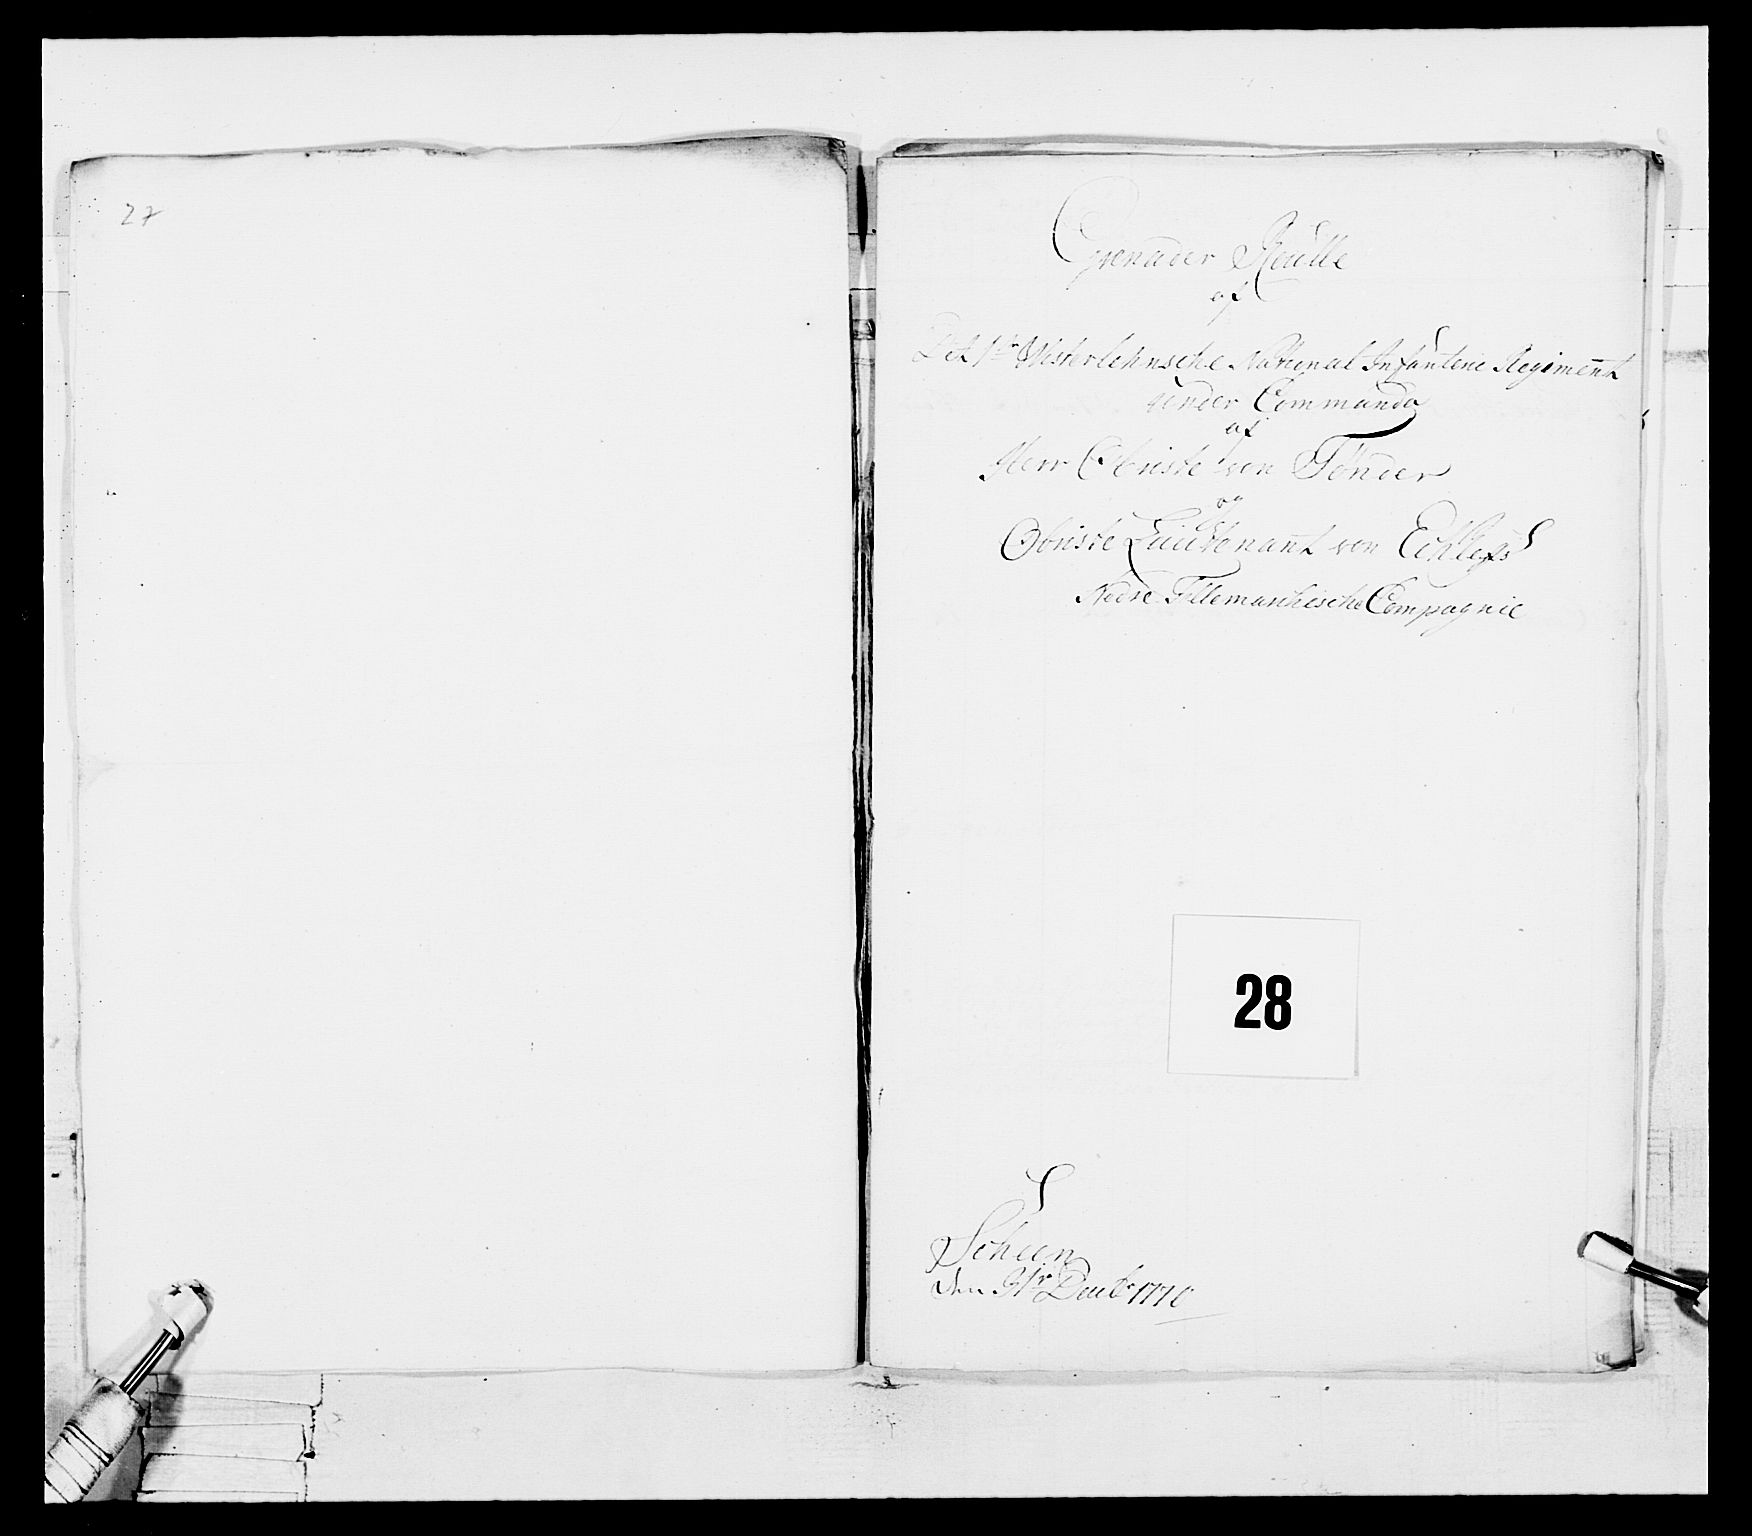 27
Grenader Roulle
af
Det 1te Westerlehnsche National Infanterie Regiment
under Commando
af
Herr Obriste von Tønder
og
Obriste Lieutenant von Eckleffs
Nedre Tellemarchische Compagnie
28
Scheen
den 31te Decbr 1770